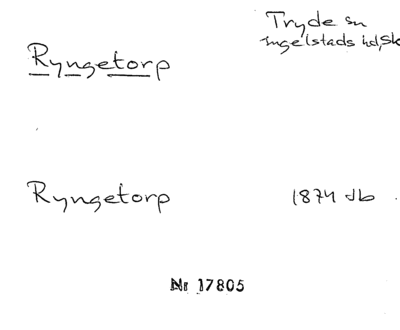 Tryde sn
Ingelstads hd, Sk
Ryngetorp
Ryngetorp
1874 db
Nr 17805